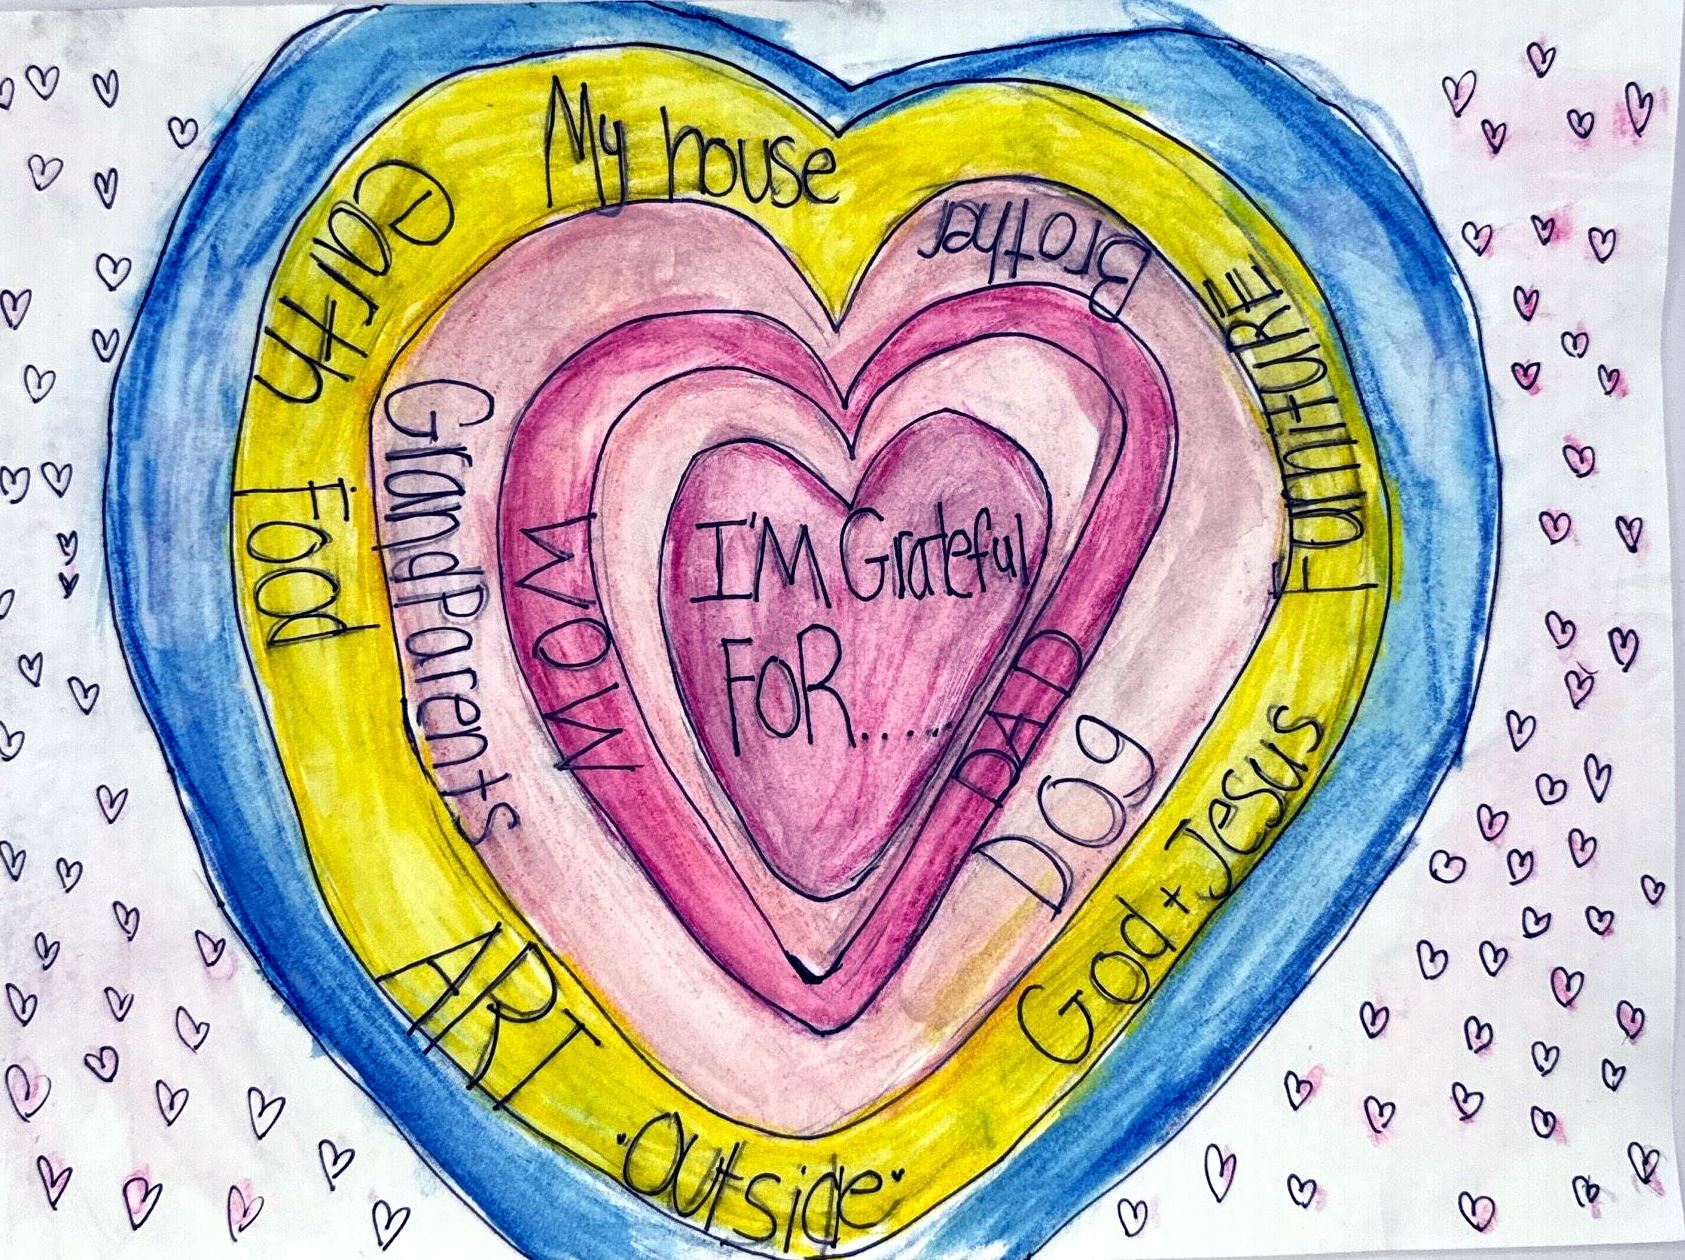 I'M Grateful
FOR......
MOM
DAD
Brother
GrandParents
Dog
My house
earth
Food
ART
outside
God + Jesus
FurnituRE